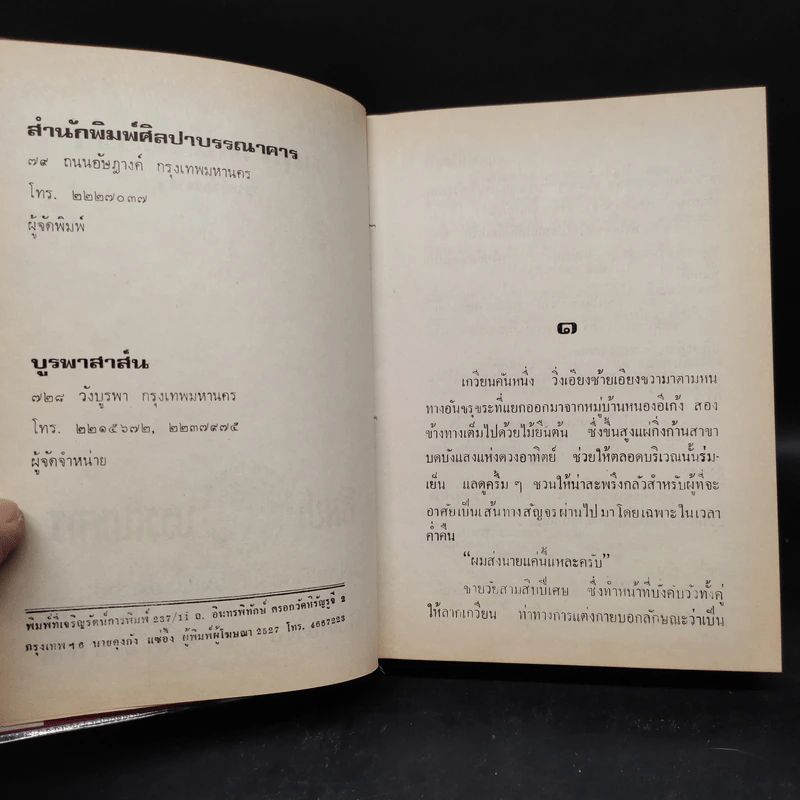 สำนักพิมพ์ศิลปาบรรณาคาร
๗๙ ถนนอัษฎางค์ กรุงเทพมหานคร
โทร. ๒๒๒๗๐๓๗
ผู้จัดพิมพ์
บูรพาสาส์น
๗๒๘ วังบูรพา กรุงเทพมหานคร
โทร. ๒๒๑๕๖๗๒, ๒๒๓๗๙๗๕
ผู้จัดจำหน่าย
พิมพ์ที่เจริญรัตน์การพิมพ์ 237/11 ถ. อินทรพิทักษ์ ตรอกวัดหิรัญรูจี 2
กรุงเทพฯ นายคุงกัง แซ่อึ้ง ผู้พิมพ์ผู้โฆษณา 2527 โทร. 4667223
๑
เกวียนคันหนึ่ง วิ่งเอียงซ้ายเอียงขวามาตามหน
ทางอันขรุขระที่แยกออกมาจากหมู่บ้านหนองอีเก้ง สอง
ข้างทางเต็มไปด้วยไม้ยืนต้น ซึ่งขึ้นสูงแผ่กิ่งก้านสาขา
บดบังแสงแห่งดวงอาทิตย์ ช่วยให้ตลอดบริเวณนั้นร่ม-
เย็น แลดูครึ้ม ๆ ชวนให้น่าสะพรึงกลัวสำหรับผู้ที่จะ
อาศัยเป็นเส้นทางสัญจรผ่านไปมาโดยเฉพาะในเวลา
ค่ำคืน
“ผมส่งนายแค่นี้แหละครับ”
ชายวัยสามสิบปีเศษ ซึ่งทำหน้าที่บังคับวัวทั้งคู่
ให้ลากเกวียน ท่าทางการแต่งกายบอกลักษณะว่าเป็น